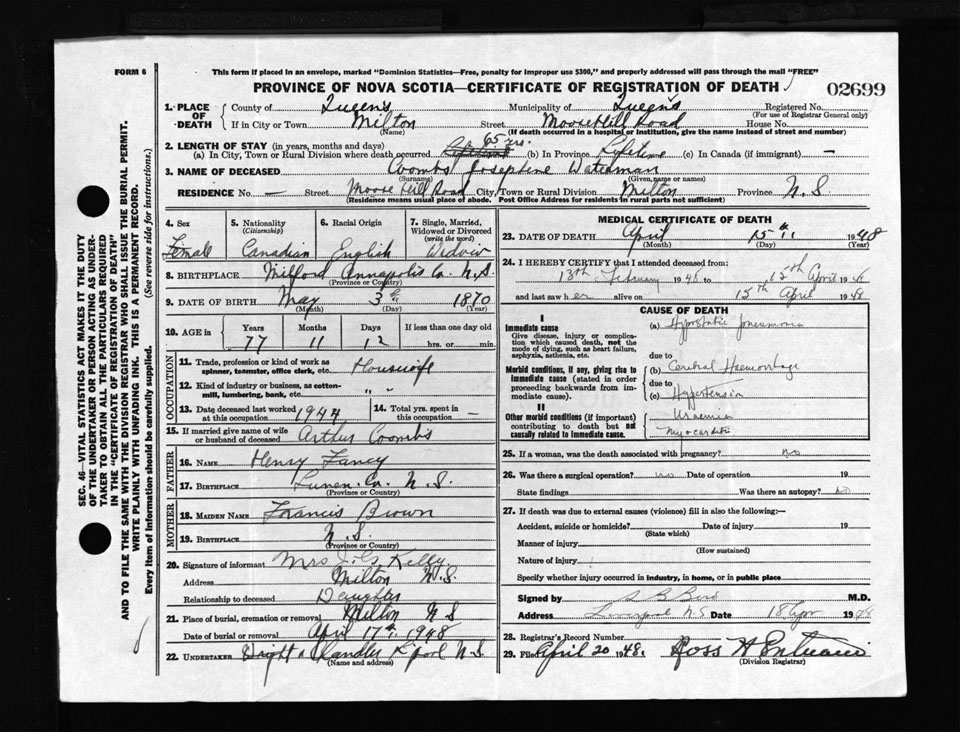 FORM 6
This form if placed in an envelope, marked "Dominion Statistics—Free, penalty for improper use $300," and properly addressed will pass through the mail "FREE"
PROVINCE OF NOVA SCOTIA—CERTIFICATE OF REGISTRATION OF DEATH
02699
1. PLACE OF DEATH
County of Queens Municipality of Queens Registered No.
(For use of Registrar General only)
If in City or Town Milton Street Moose Hill Road House No.
(Name) (If death occurred in a hospital or institution, give the name instead of street and number)
2. LENGTH OF STAY (in years, months and days) 65 yrs.
(a) In City, Town or Rural Division where death occurred (b) In Province Lifetime (c) In Canada (if immigrant) —
3. NAME OF DECEASED Coombs Josephine Waterman
(Surname) (Given name or names)
RESIDENCE No. — Street Moose Hill Road City, Town or Rural Division Milton Province N.S.
(Residence means usual place of abode. Post Office Address for residents in rural parts not sufficient)
4. Sex
Female
5. Nationality
(Citizenship)
Canadian
6. Racial Origin
English
7. Single, Married, Widowed or Divorced
(write the word)
Widow
8. BIRTHPLACE Milford Annapolis Co. N.S.
(Province or Country)
9. DATE OF BIRTH May 3 1870
(Month) (Day) (Year)
10. AGE in
Years Months Days If less than one day old
77 11 12 hrs. or min.
OCCUPATION
11. Trade, profession or kind of work as spinner, teamster, office clerk, etc. Housewife
12. Kind of industry or business, as cotton-mill, lumbering, bank, etc. " "
13. Date deceased last worked at this occupation 1944
14. Total yrs. spent in this occupation —
15. If married give name of wife or husband of deceased Arthur Coombs
FATHER
16. NAME Henry Fancy
17. BIRTHPLACE Lunen. Co. N.S.
(Province or Country)
MOTHER
18. MAIDEN NAME Francis Brown
19. BIRTHPLACE N.S.
(Province or Country)
20. Signature of informant Mrs Kelly
Address Milton N.S.
Relationship to deceased Daughter
21. Place of burial, cremation or removal Milton N S
Date of burial or removal April 17th, 1948
22. UNDERTAKER Chandler L'pool N.S.
(Name and address)
MEDICAL CERTIFICATE OF DEATH
23. DATE OF DEATH April 15th 1948
(Month) (Day) (Year)
24. I HEREBY CERTIFY that I attended deceased from:
13th February 1948 to 15th April 1948
and last saw her alive on 15th April 1948
CAUSE OF DEATH
I
Immediate cause
Give disease, injury or complication which caused death, not the mode of dying, such as heart failure, asphyxia, asthenia, etc.
(a) Hypostatic pneumonia
due to
Morbid conditions, if any, giving rise to immediate cause (stated in order proceeding backwards from immediate cause).
(b) Cerebral Haemorrhage
due to
(c) Hypertension
II
Other morbid conditions (if important) contributing to death but not causally related to immediate cause.
Uraemia
Myocarditis
25. If a woman, was the death associated with pregnancy? No
26. Was there a surgical operation? no Date of operation 19
State findings Was there an autopsy? no
27. If death was due to external causes (violence) fill in also the following:—
Accident, suicide or homicide? Date of injury 19
(State which)
Manner of injury
(How sustained)
Nature of injury
Specify whether injury occurred in industry, in home, or in public place
Signed by M.D.
Address Liverpool N.S Date 18 Apr 1948
28. Registrar's Record Number
29. Filed April 20 1948. Ross H
(Division Registrar)
SEC. 46—VITAL STATISTICS ACT MAKES IT THE DUTY
OF THE UNDERTAKER OR PERSON ACTING AS UNDER-
TAKER TO OBTAIN ALL THE PARTICULARS REQUIRED
IN THE "CERTIFICATE OF REGISTRATION OF DEATH"
AND TO FILE THE SAME WITH THE DIVISION REGISTRAR WHO SHALL ISSUE THE BURIAL PERMIT.
WRITE PLAINLY WITH UNFADING INK. THIS IS A PERMANENT RECORD.
Every item of information should be carefully supplied. (See reverse side for instructions.)